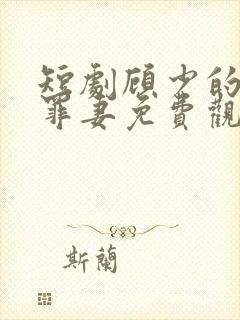 短劇顾少的
罪妻免費觀
斯蘭